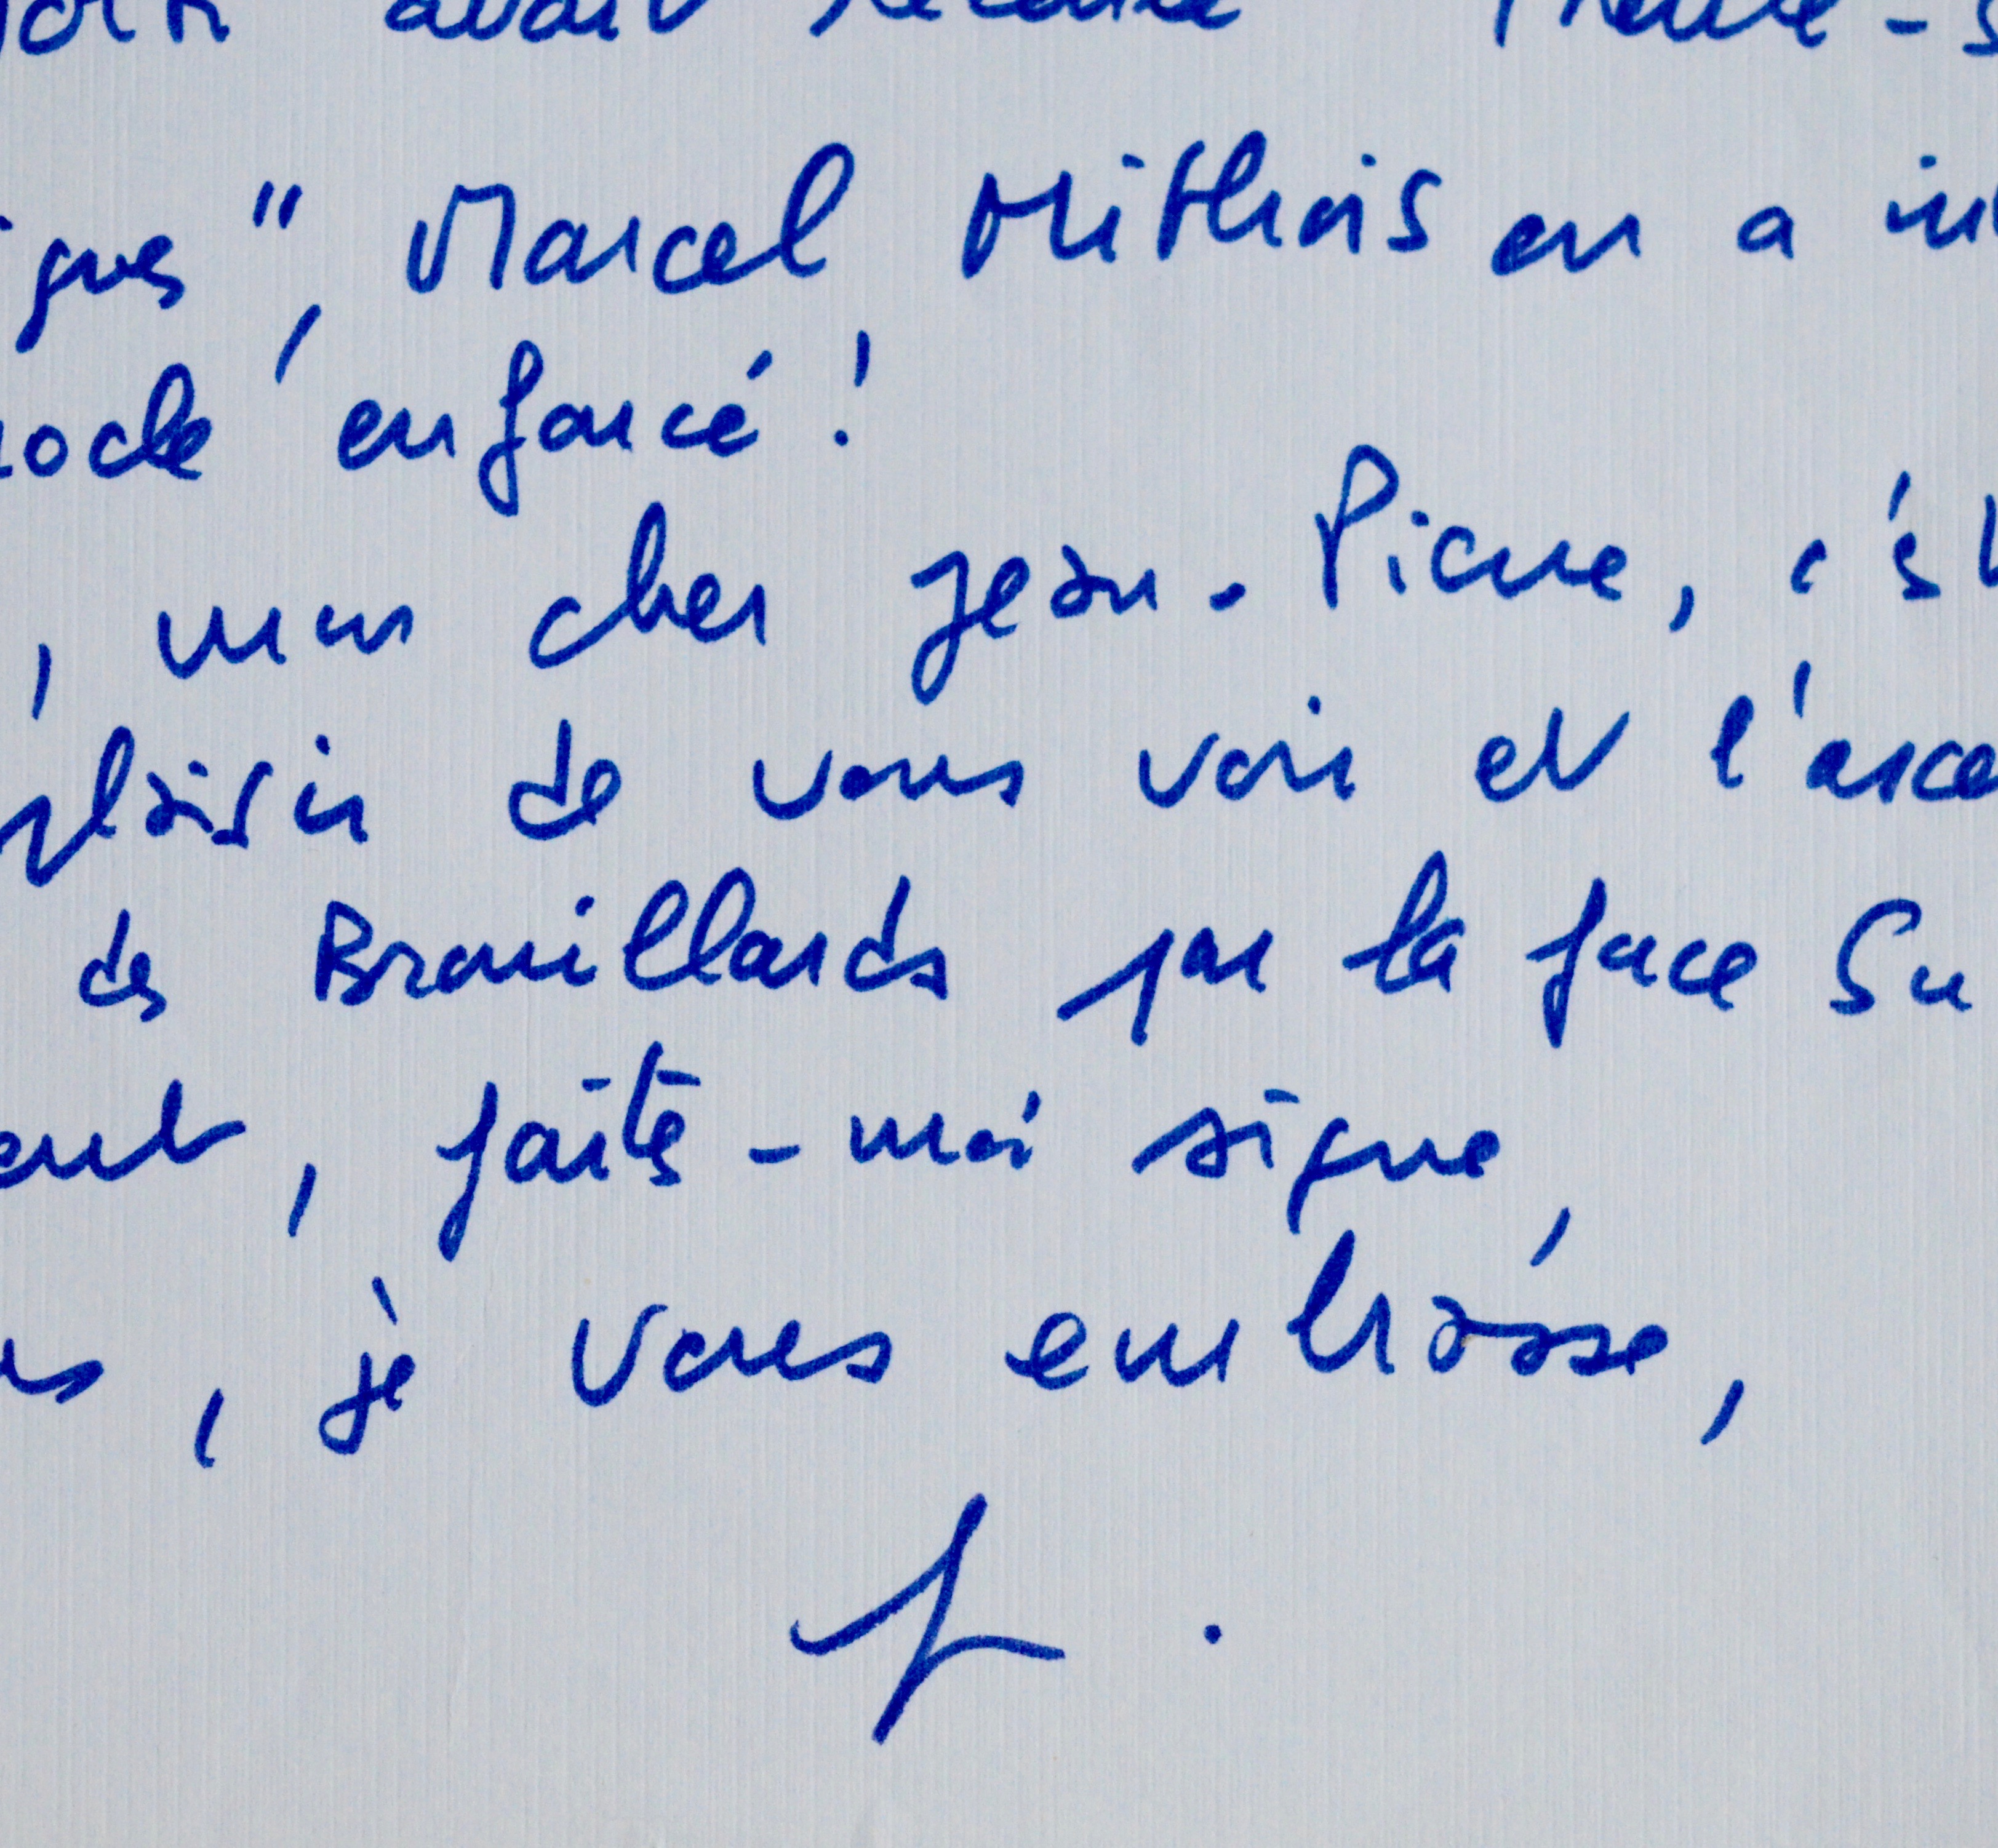 avait Trente-s
igues", Marcel Mithois en a in
enfoncé !
, mon cher Jean-Pierre, c'est
plaisir de vous voir et l'asce
des Brouillards par la face Su
, faites-moi signe,
, je vous embrasse,